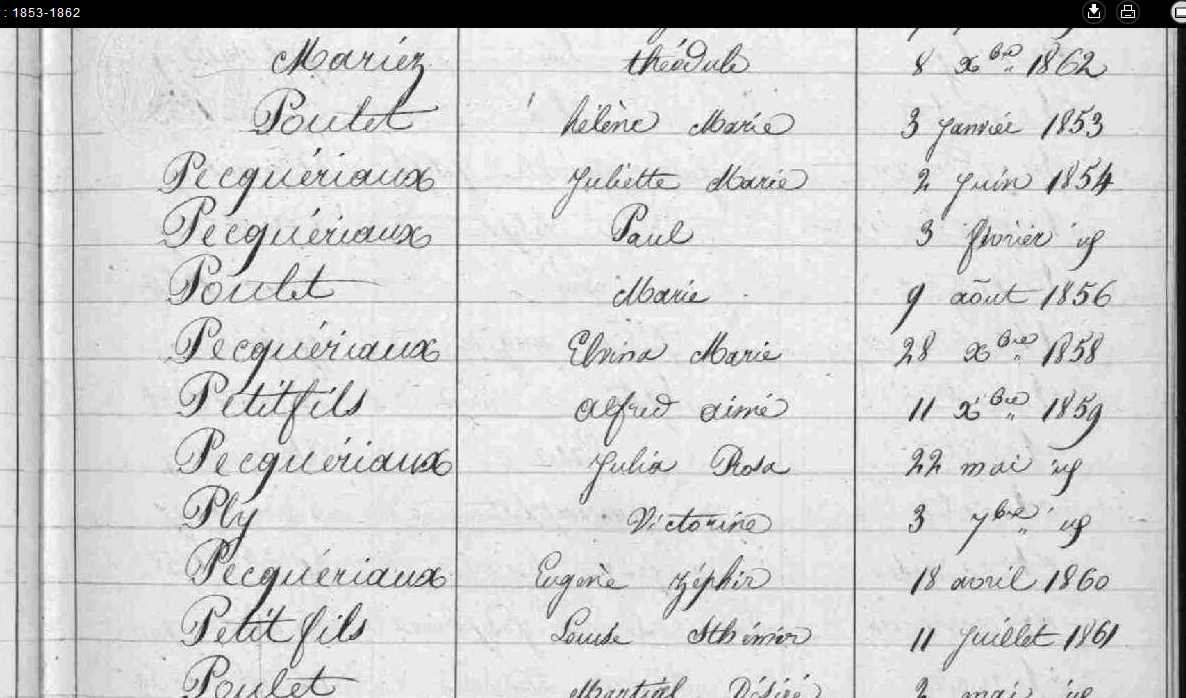 : 1853-1862
Mariéz théodule 8 xbre 1862
Poulet hélène Marie 3 janvier 1853
Pecquériaux Juliette Marie 2 juin 1854
Pecquériaux Paul 3 février id
Poulet Marie 9 août 1856
Pecquériaux Elvina Marie 28 xbre 1858
Petitfils alfred aimé 11 xbre 1859
Pecquériaux Julia Rosa 22 mai id
Ply Victorine 3 7bre id
Pecquériaux Eugène zéphir 18 avril 1860
Petit fils Louise 11 juillet 1861
Poulet Martial Désiré 2 mai